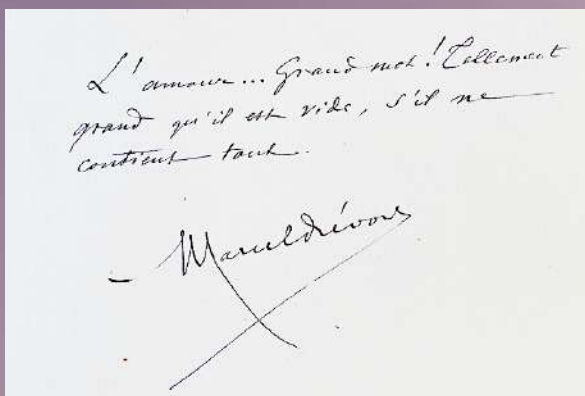 L'amour... Grand mot ! Tellement
grand qu'il est vide, s'il ne
contient tout.
– Marcel Prévost